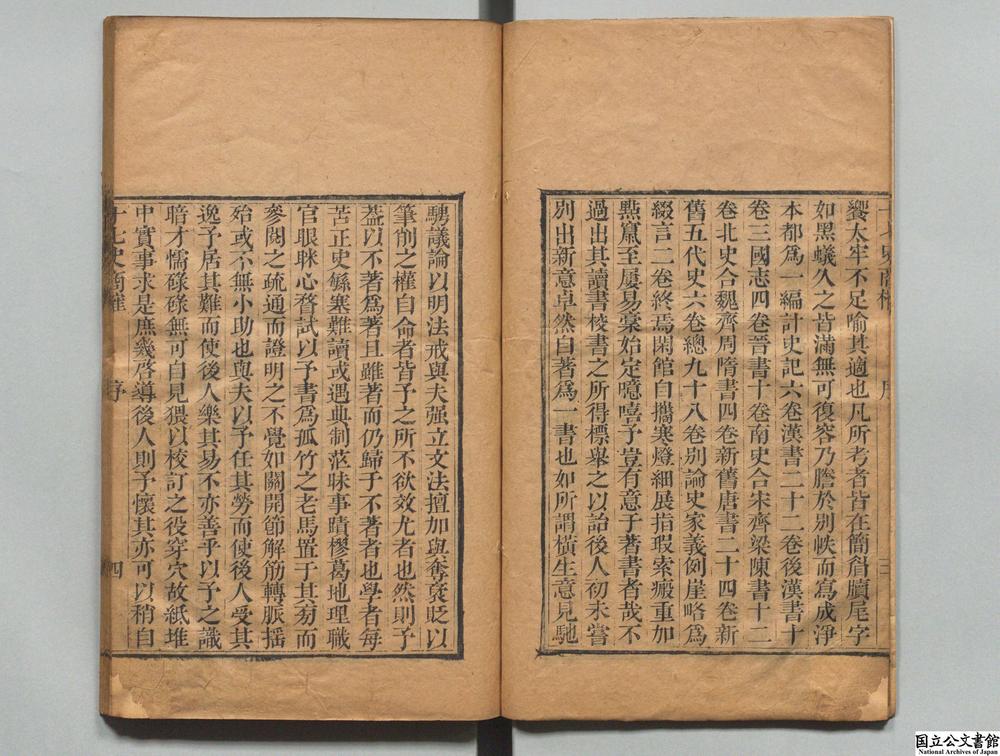 饗太牢不足喻其適也凡所考者皆在簡眉牘尾字
如黑蟻久之皆滿無可復容乃謄於别帙而寫成淨
本都為一編計史記六卷漢書二十二卷後漢書十
卷三國志四卷晉書十卷南史合宋齊梁陳書十二
卷北史合魏齊周隋書四卷新舊唐書二十四卷新
舊五代史六卷總九十八卷别論史家義例崖略為
綴言二卷終焉閑館自攜寒燈細展指瑕索瘢重加
點竄至屢易稾始定噫嘻予豈有意于著書者哉不
過出其讀書校書之所得標舉之以詒後人初未嘗
别出新意卓然自著為一書也如所謂横生意見馳
騁議論以明法戒與夫强立文法擅加與奪襃貶以
筆削之權自命者皆予之所不欲效尤者也然則予
葢以不著為著且雖著而仍歸于不著者也學者每
苦正史緐塞難讀或遇典制茫昧事蹟樛葛地理職
官眼眯心瞀試以予書為孤竹之老馬置于其旁而
參閱之疏通而證明之不覺如關開節解筋轉脈摇
殆或不無小助也與夫以予任其勞而使後人受其
逸予居其難而使後人樂其易不亦善乎以予之識
暗才懦碌碌無可自見猥以校訂之役穿穴故紙堆
中實事求是庶幾啓導後人則予懷其亦可以稍自
十七史商榷 序 四
国立公文書館
National Archives of Japan